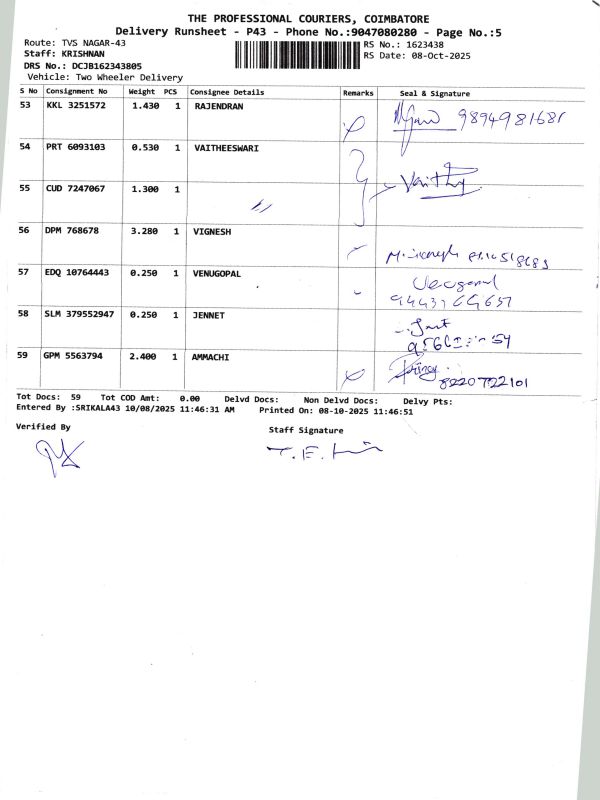 THE PROFESSIONAL COURIERS, COIMBATORE
Delivery Runsheet - P43 - Phone No.:9047080280 - Page No.:5
Route: TVS NAGAR-43 RS No.: 1623438
Staff: KRISHNAN RS Date: 08-Oct-2025
DRS No.: DCJB162343805
Vehicle: Two Wheeler Delivery
S No Consignment No Weight PCS Consignee Details Remarks Seal & Signature
53 KKL 3251572 1.430 1 RAJENDRAN 9894981681
54 PRT 6093103 0.530 1 VAITHEESWARI
55 CUD 7247067 1.300 1 Vaithy
56 DPM 768678 3.280 1 VIGNESH
57 EDQ 10764443 0.250 1 VENUGOPAL
58 SLM 379552947 0.250 1 JENNET
59 GPM 5563794 2.400 1 AMMACHI 8220722101
Tot Docs: 59 Tot COD Amt: 0.00 Delvd Docs: Non Delvd Docs: Delvy Pts:
Entered By :SRIKALA43 10/08/2025 11:46:31 AM Printed On: 08-10-2025 11:46:51
Verified By Staff Signature